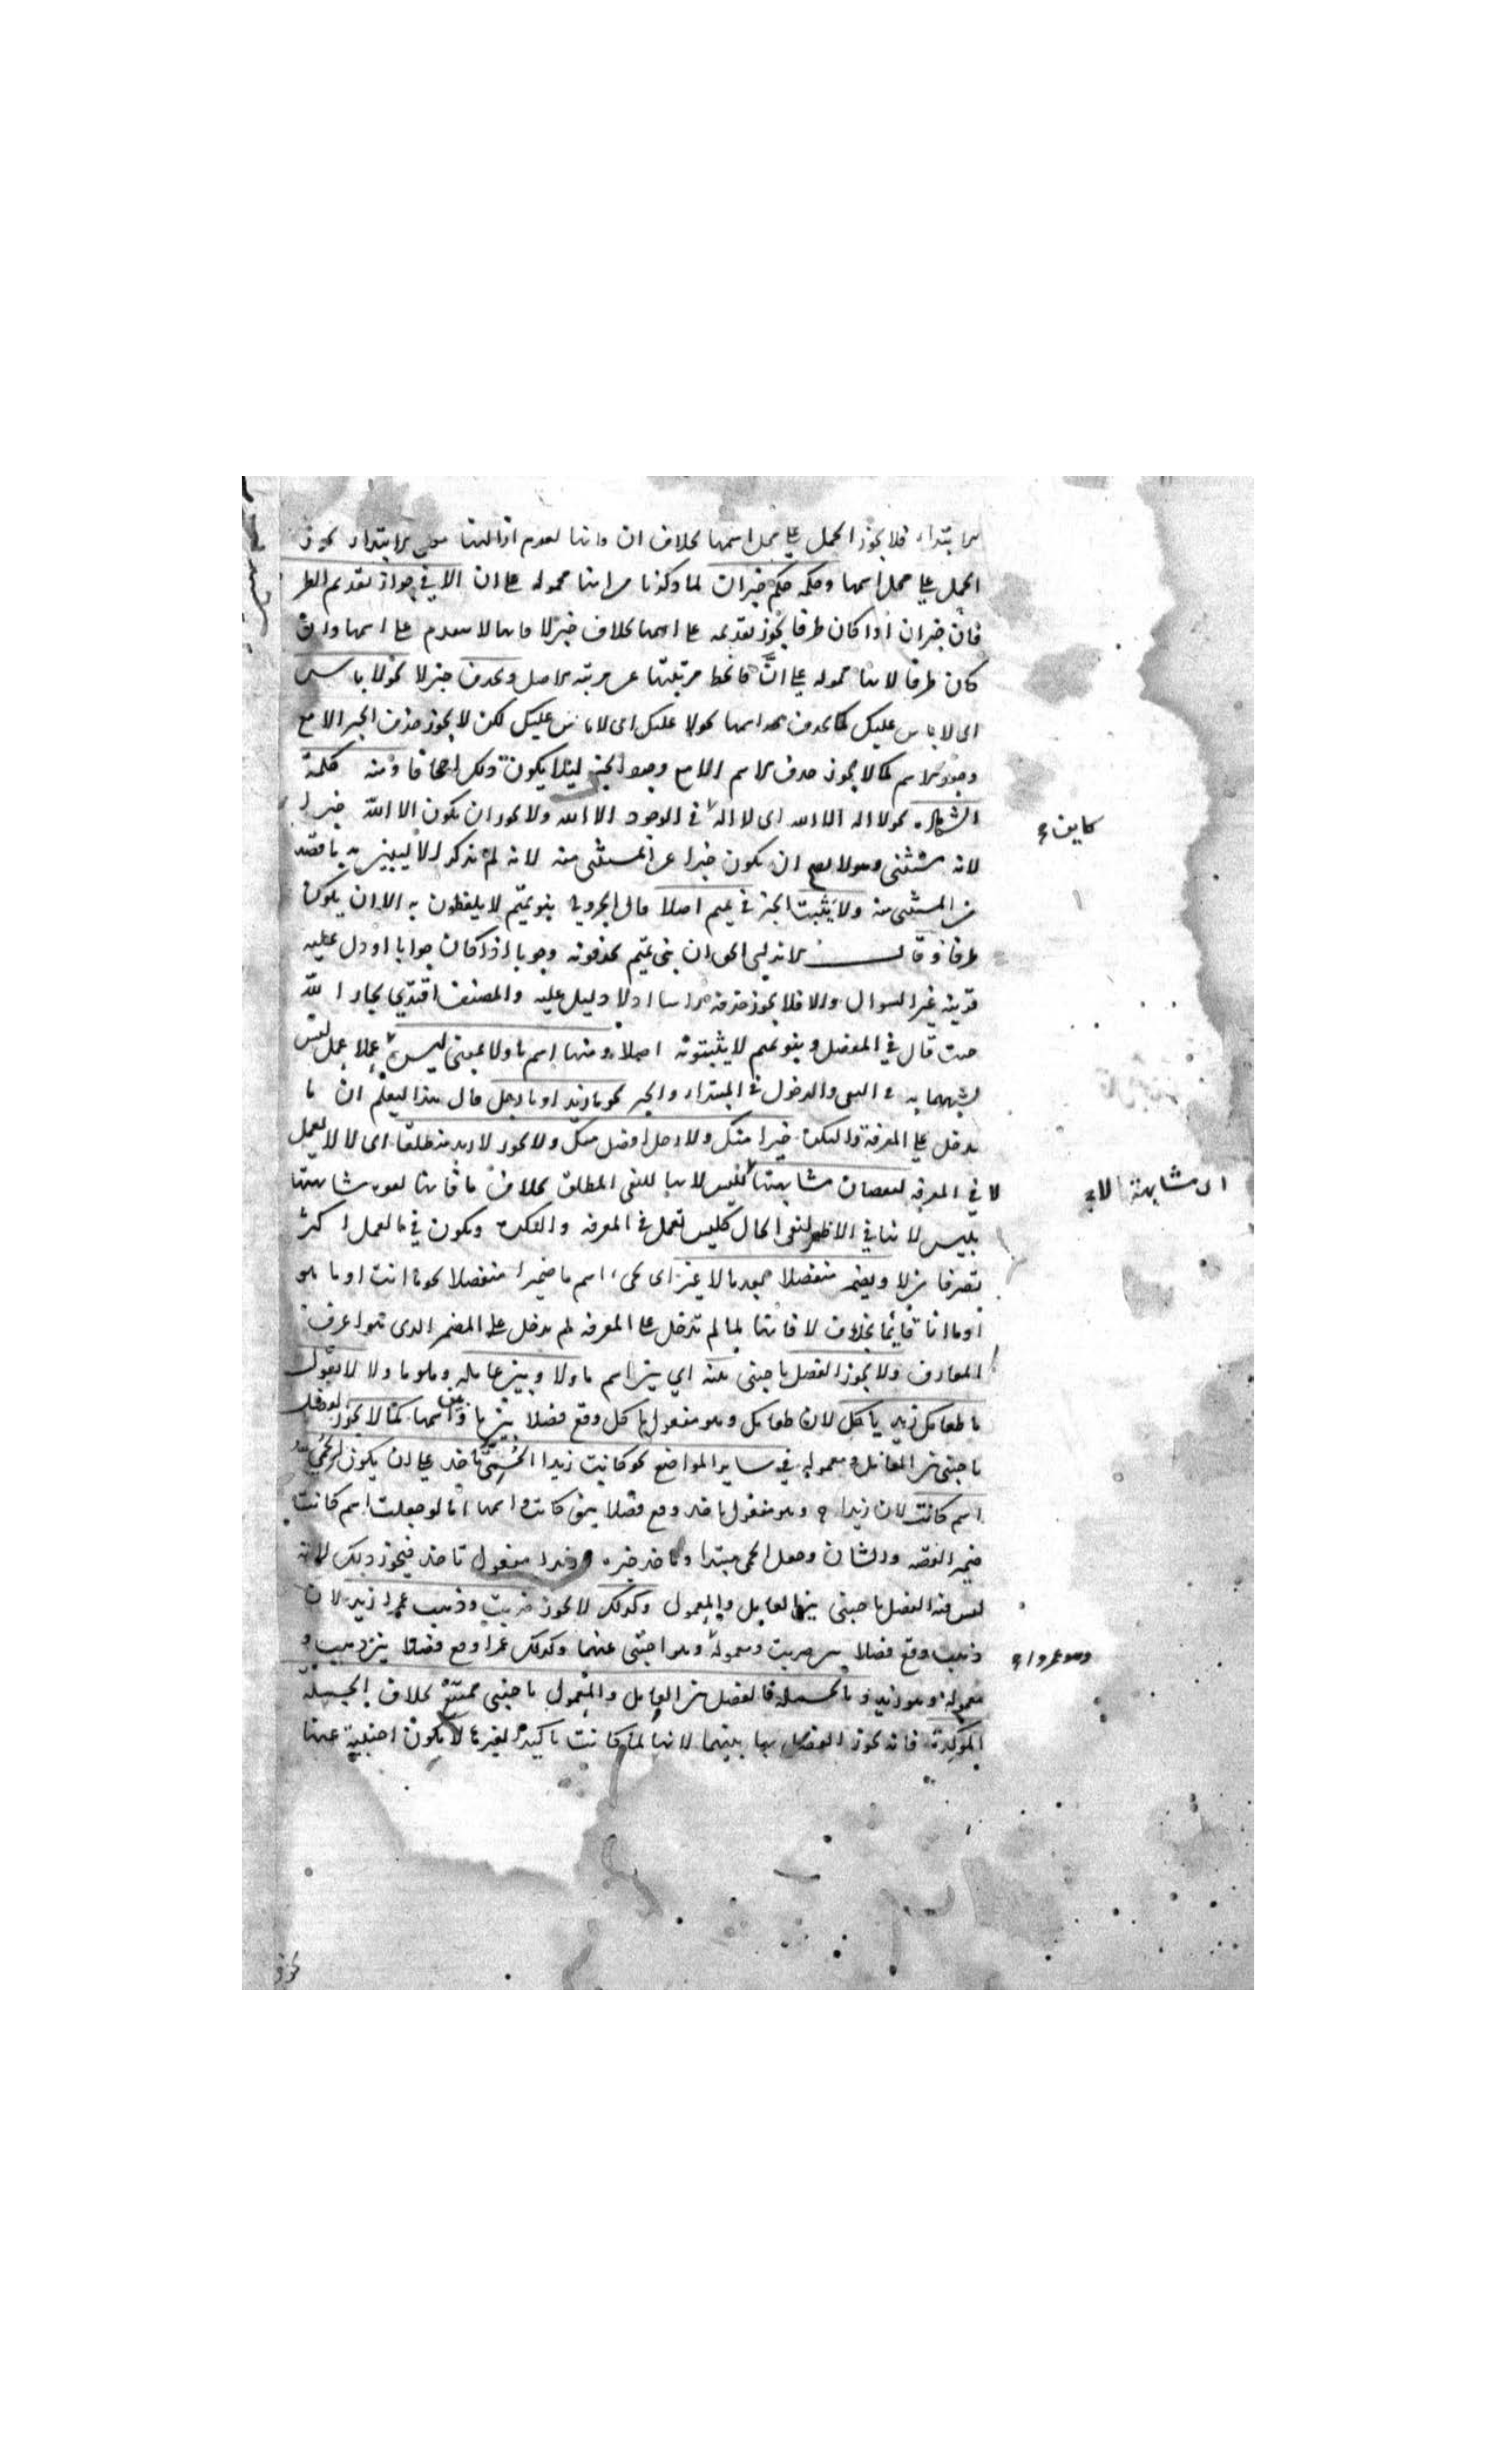 الابتداء فلا يجوز الحمل على محل اسمها بخلاف ان فانها لعدم ازالتها معنى الابتداء يجوز
الحمل على محل اسمها وحكمه حكم خبر ان لما ذكرنا من انها محمولة على ان الا في جواز تقديم الظر
فان خبر ان اذا كان ظرفا يجوز تقديمه على اسمها بخلاف خبر لا فانها لا يتقدم على اسمها وان
كان ظرفا لانها محمولة على انَّ فانحط مرتبتها عن مرتبة الاصل ويحذف خبر لا نحو لا باس
اى لا باس عليك كما يحذف اسمها نحو لا عليك اى لا باس عليك لكن لا يجوز حذف الخبر الا مع
وجود الاسم كما لا يجوز حذف الاسم الا مع وجود الخبر لئلا يكون ذلك اجحافا ومنه كلمة
الشهادة نحو لا اله الا الله اى لا اله في الوجود الا الله ولا يجوز ان يكون الا الله خبرا
لانه مستثنى ولا يصح ان يكون خبرا عن المستثنى منه لانه لم يذكر الا ليبين به ما قصد
من المستثنى منه ولا يثبت الخبر في تميم اصلا قال الجزولي بنو تميم لا يلفظون به الا ان يكون
ظرفا وقال الاندلسي الحق ان بني تميم يحذفونه وجوبا اذا كان جوابا او دل عليه
قرينة غير السوال والا فلا يجوز حذفه راسا اذ لا دليل عليه والمصنف اقتدى بجار الله
حيث قال في المفصل وبنو تميم لا يثبتونه اصلا ومنها اسم ما ولا بمعنى ليس عملا عمل ليس
لشبههما به في النفي والدخول في المبتداء والخبر نحو ما زيد او ما رجل قال هذا ليعلم ان ما
يدخل على المعرفة والنكرة خيرا منك ولا رجل افضل منك ولا يجوز لا زيد منطلقا اى لا يعمل
لا في المعرفة لنقصان مشابهتها لليس لانها للنفى المطلق بخلاف ما فانها لقوة مشابهتها
بليس لانها في الاظهر لنفى الحال كليس تعمل في المعرفة والنكرة ويكون في ما العمل اكثر
تصرفا من لا ويضمر منفصلا بعد ما لا غير اى يجىء اسم ما ضميرا منفصلا نحو ما انت او ما هو
او ما انا قائما بخلاف لا فانها لما لم تدخل على المعرفة لم يدخل على المضمر الذى هو اعرف
المعارف ولا يجوز الفصل باجنبى بينه اي بين اسم ما ولا وبين عامله وهو ما ولا لا تقول
ما طعامك زيد ياكل لان طعامك وهو مفعول ياكل وقع فصلا بين ما وبين اسمها كما لا يجوز الفصل
باجنبى بين العامل ومعموله في ساير المواضع نحو كانت زيدا الحُمّى تاخذ على ان يكون الحمى
اسم كانت لان زيدا وهو مفعول تاخذ وقع فصلا بين كانت واسمها اما لو جعلت اسم كانت
ضمير القصة والشان وجعل الحمى مبتدا وتاخذ خبره وزيدا مفعول تاخذ فيجوز ذلك لانه
ليس فيه الفصل باجنبى بين العامل والمعمول وكذلك لا يجوز ضربت وذهب عمرا زيد لان
ذهب وقع فصلا بين ضربت ومعموله وهو اجنبى عنهما وكذلك عمرا وقع فصلا بين ذهب و
معموله وهو زيد وبالجملة فالفصل بين العامل والمعمول باجنبى ممتنع بخلاف الجملة
المؤكدة فانه يجوز الفصل بها بينهما لانها لما كانت تاكيدا لغيرها لا تكون اجنبية عنها
كاين
اى مشابهة لا
وهو عمروا